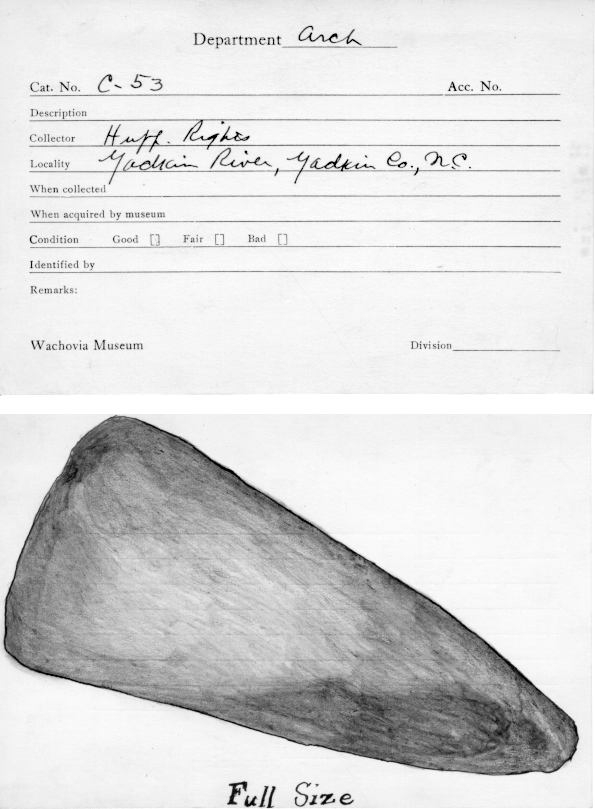 Department Arch
Cat. No. C-53 Acc. No.
Description
Collector Huff. Rights
Locality Yadkin River, Yadkin Co., N.C.
When collected
When acquired by museum
Condition Good [] Fair [] Bad []
Identified by
Remarks:
Wachovia Museum Division
Full Size